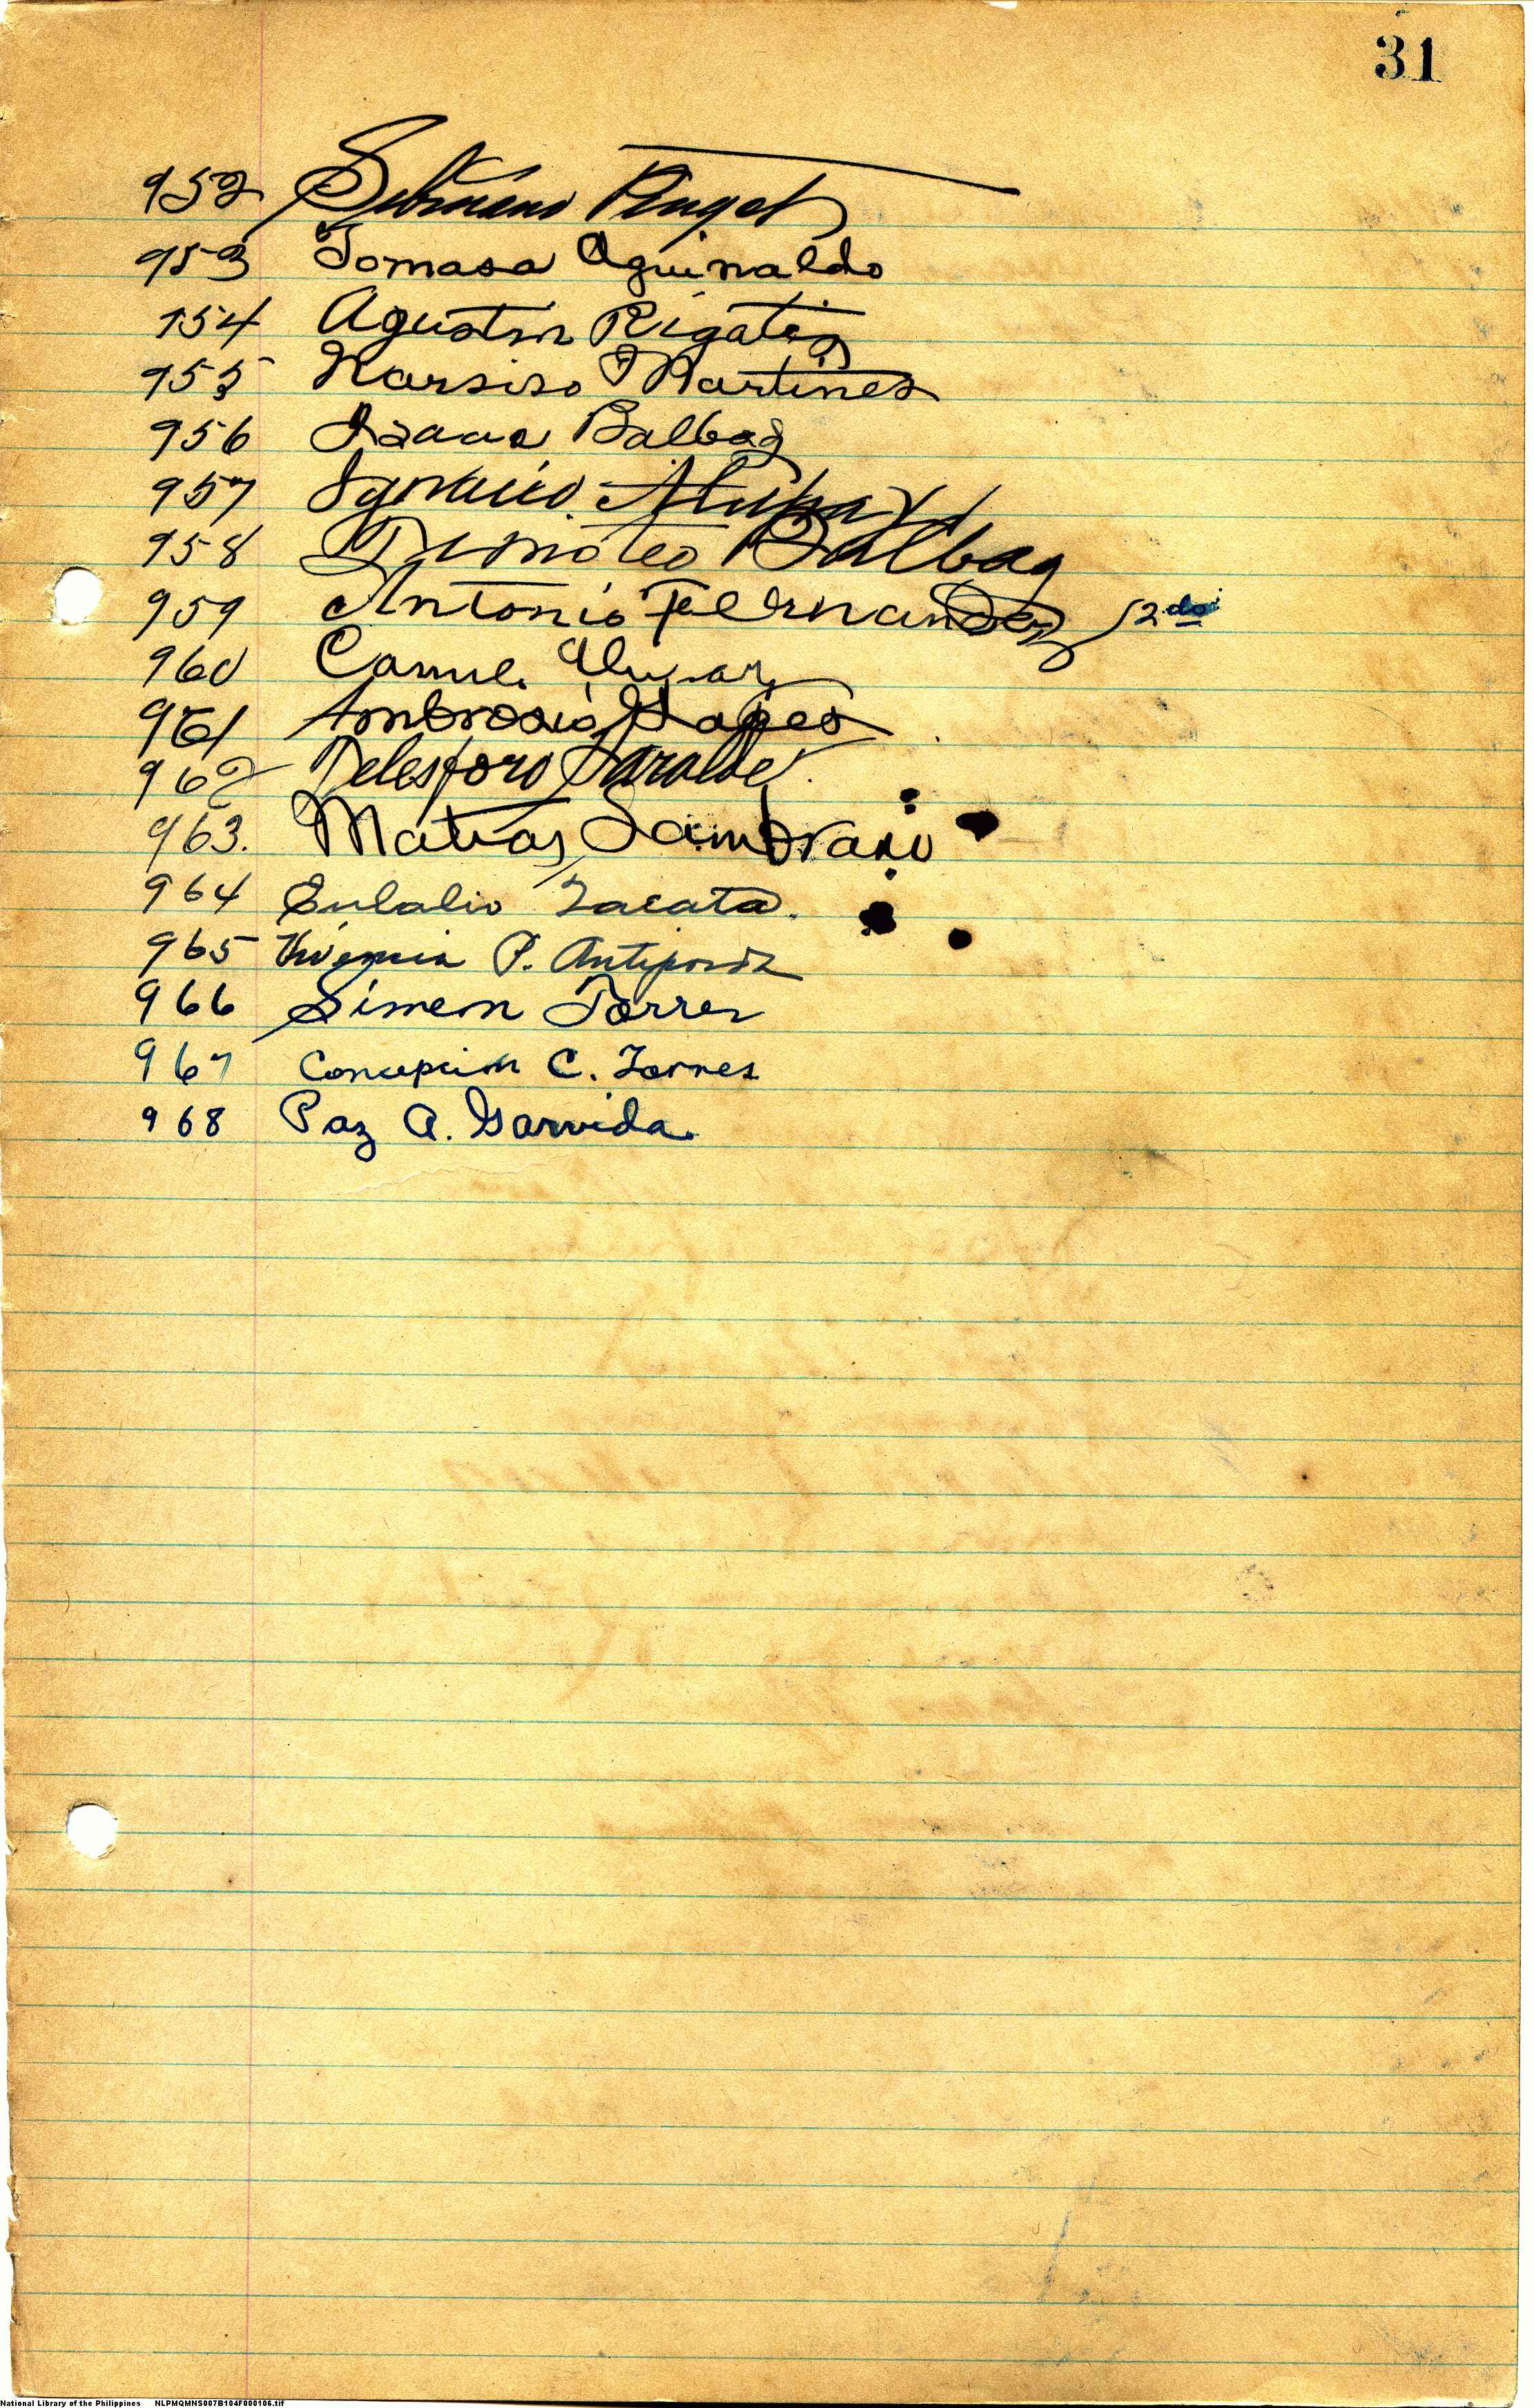 31
952 Pungol
953 Tomasa Aguinaldo
954 Agustin Rigates
955 Narsiso Martines
956 Isaac Balbag
957 Ignacio
958 Timoteo Balbag
959 Antonio Fernandez 2do
960
961 Ambrosio Lopes
962 Telesforo
963. Matias Sambrano
964 Eulalio Zacata.
965 P. Antiporda
966 Simeon Torres
967 Concepcion C. Torres
968 Paz A. Garvida
National Library of the Philippines NLPMQMNS007B104F000106.tif